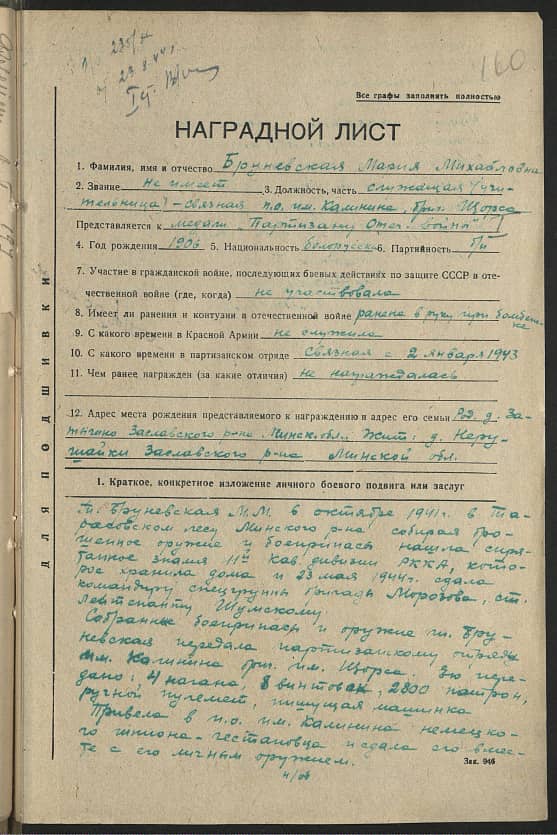 160
Все графы заполнять полностью
НАГРАДНОЙ ЛИСТ
1. Фамилия, имя и отчество Бруневская Мария Михайловна
2. Звание не имеет 3. Должность, часть служащая (учи-
тельница) – связная п.о. им. Калинина, бриг. Щорса
Представляется к медали "Партизану Отеч. войны"
4. Год рождения 1906 5. Национальность белорусска 6. Партийность б/п
7. Участие в гражданской войне, последующих боевых действиях по защите СССР в оте-
чественной войне (где, когда) не участвовала
8. Имеет ли ранения и контузии в отечественной войне ранена в руку при бомбежке
9. С какого времени в Красной Армии не служила
10. С какого времени в партизанском отряде связная с 2 января 1943
11. Чем ранее награжден (за какие отличия) не награждалась
12. Адрес места рождения представляемого к награждению и адрес его семьи Род. д.
Заславского р-на Минск. обл. Жит: д.
Заславского р-на Минской обл.
1. Краткое, конкретное изложение личного боевого подвига или заслуг
Бруневская М.М. в октябре 1941 г. в Та-
расовском лесу Минского р-на собирая бро-
шенное оружие и боеприпасы нашла спря-
танное знамя 11й кав. дивизии РККА, кото-
рое хранила дома и 23 мая 1944 г. сдала
командиру спецгруппы бригады Морозова, ст.
лейтенанту Шумскому
Собранные боеприпасы и оружие т. Бру-
невская передала партизанскому отряду
им. Калинина бриг. им. Щорса. Ею пере-
дано: 4 нагана, 8 винтовок, 2800 патрон,
ручной пулемет, пишущая машинка
Привела в п.о. им. Калинина немецко-
го шпиона-гестаповца и сдала его вмес-
те с его личным оружием.
Зак. 946
ДЛЯ ПОДШИВКИ